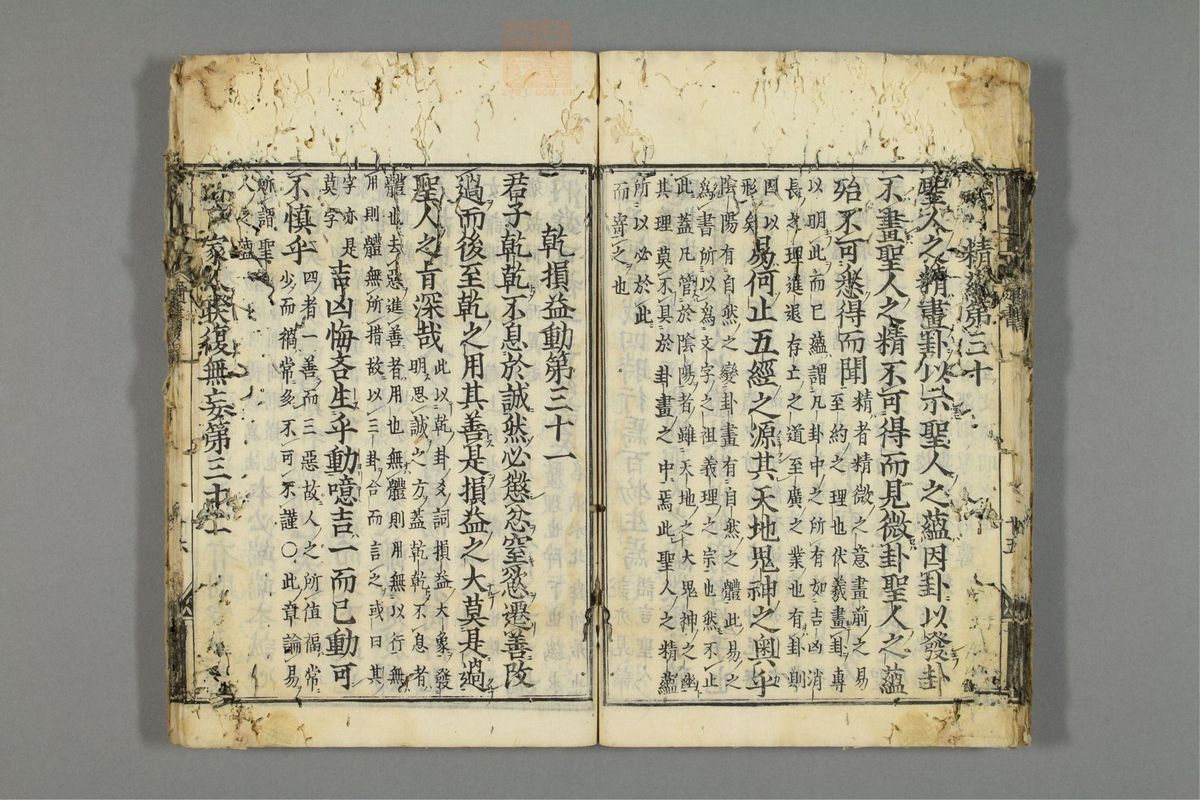 精蘊第三十
聖人之精畫卦以示聖人之蘊因卦以發卦
不畫聖人之精不可得而見微卦聖人之蘊
殆不可悉得而聞
精者精微之意畫前之易
至約之理也伏羲畫卦專
以明此而已蘊謂凡卦中之所有如吉凶消
長之理進退存亡之道至廣之業也有卦則
因以
形矣
易何止五經之源其天地鬼神之奧乎
陰陽有自然之變卦畫有自然之體此易之
為書所以為文字之祖義理之宗也然不止
此蓋凡管於陰陽者雖天地之大鬼神之幽
其理莫不具於卦畫之中焉此聖人之精蘊
所以必於此
而寄之也
乾損益動第三十一
君子乾乾不息於誠然必懲忿窒慾遷善改
過而後至乾之用其善是損益之大莫是過
聖人之旨深哉
此以乾卦爻詞損益大象發
明思誠之方蓋乾乾不息者
體也去惡進善者用也無體則用無以行無
用則體無所措故以三卦合而言之或曰其
字亦是
莫字
吉凶悔吝生乎動噫吉一而已動可
不慎乎
四者一善而三惡故人之所值福常
少而禍常多不可不謹〇此章論易
所謂聖
人之蘊
家人睽復無妄第三十二